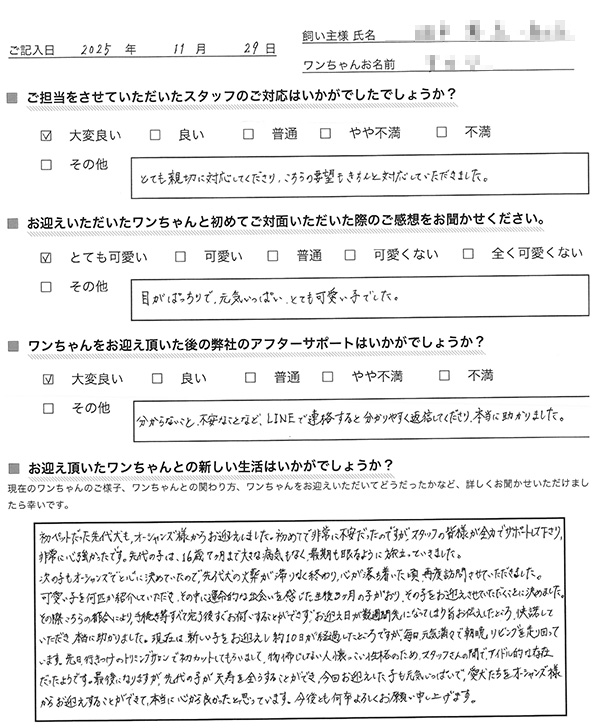 ご記入日 2025 年 11 月 29 日
飼い主様 氏名
ワンちゃんお名前
■ ご担当をさせていただいたスタッフのご対応はいかがでしたでしょうか？
☑ 大変良い □ 良い □ 普通 □ やや不満 □ 不満
□ その他
とても親切に対応してくださり、こちらの要望もきちんと対応していただきました。
■ お迎えいただいたワンちゃんと初めてご対面いただいた際のご感想をお聞かせください。
☑ とても可愛い □ 可愛い □ 普通 □ 可愛くない □ 全く可愛くない
□ その他
目がぱっちりで、元気いっぱい、とても可愛い子でした。
■ ワンちゃんをお迎え頂いた後の弊社のアフターサポートはいかがでしょうか？
☑ 大変良い □ 良い □ 普通 □ やや不満 □ 不満
□ その他
分からないこと、不安なことなど、LINEで連絡すると分かりやすく返信してくださり、本当に助かりました。
■ お迎え頂いたワンちゃんとの新しい生活はいかがでしょうか？
現在のワンちゃんのご様子、ワンちゃんとの関わり方、ワンちゃんをお迎えいただいてどうだったかなど、詳しくお聞かせいただけまし
たら幸いです。
初ペットだった先代犬も、オーシャンズ様からお迎えしました。初めてで非常に不安だったのですが、スタッフの皆様が全力でサポートして下さり、
非常に心強かったです。先代の子は、16歳7ヶ月まで大きな病気もなく、最期も眠るように旅立っていきました。
次の子もオーシャンズでと心に決めていたので、先代犬の火葬が滞りなく終わり、心が落ち着いた頃、再度訪問させていただきました。
可愛い子を何匹か紹介していただき、その中に運命的な出会いを感じた生後2ヶ月の子がおり、その子をお迎えさせていただくことに決めました。
その際、こちらの都合により、手続き等すべて完了後すぐお伺いすることができず、お迎え日が数週間先になってしまう旨お伝えしたところ、快諾して
いただき、本当に助かりました。現在は、新しい子をお迎えし約10日が経過したところですが、毎日元気満々で朝晩、リビングを走り回って
います。先日、行きつけのトリミングサロンで初カットしてもらいまして、物怖じしない人懐っこい性格のため、スタッフさんの間で、アイドル的な存在
だったようです。最後になりますが、先代の子が天寿を全うすることができ、今回お迎えした子も元気いっぱいで、愛犬たちをオーシャンズ様
からお迎えすることができて、本当に心から良かったと思っています。今後とも何卒よろしくお願い申し上げます。